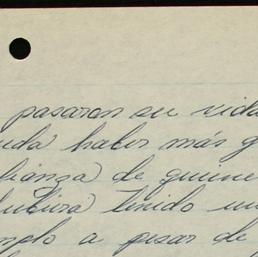 pasaran su vida
uda haber más g
fianza de quine
hubiera tenido un
mplo a pesar de